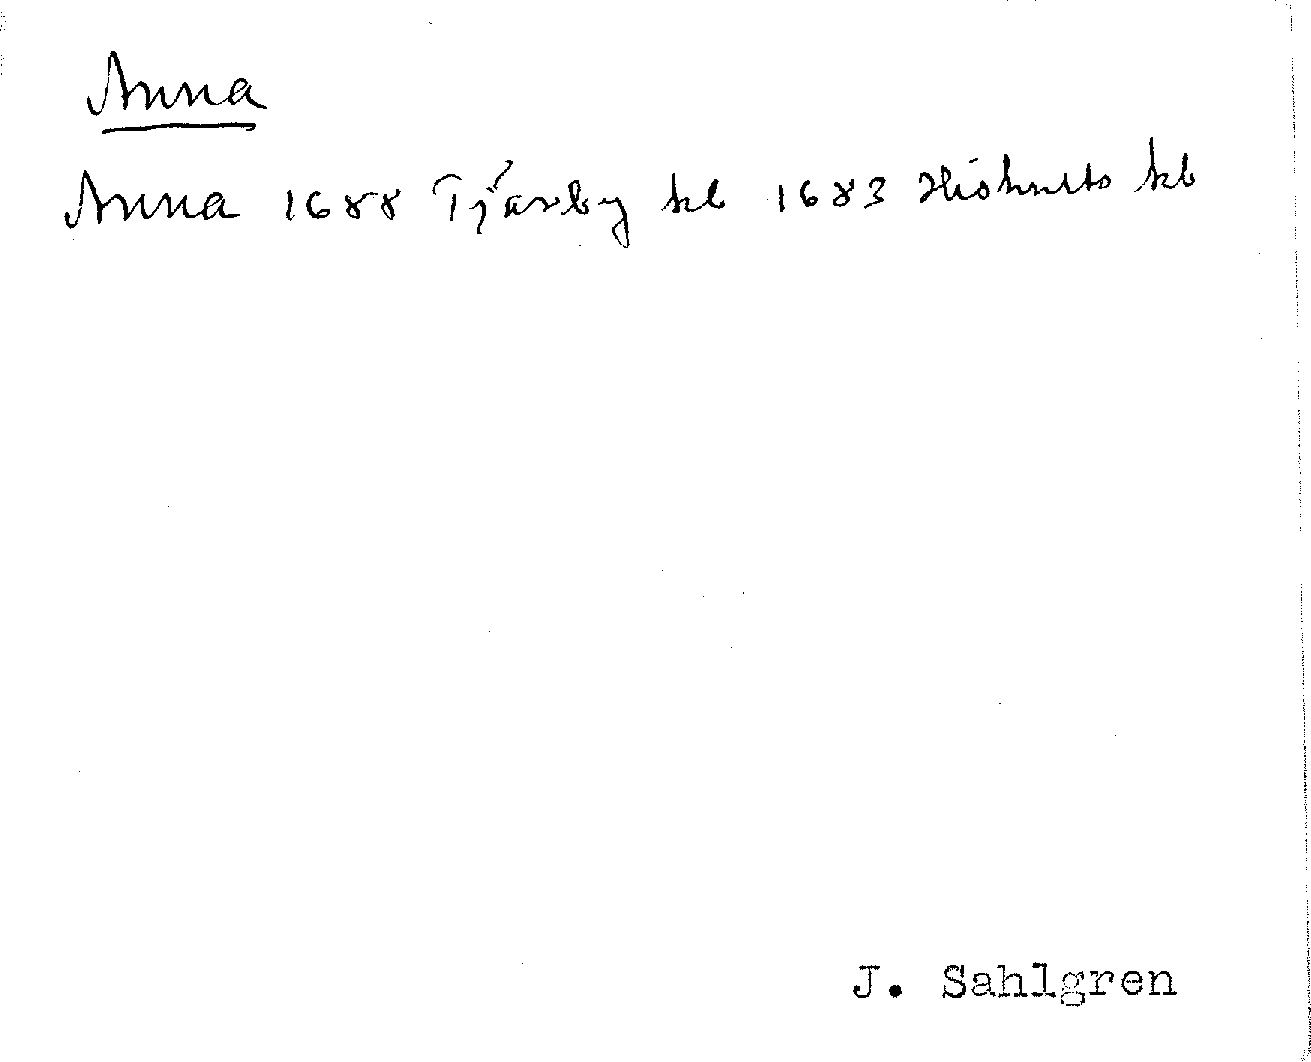 Anna
Anna 1688 Tjärby kb 1683 Hishults kb
J. Sahlgren